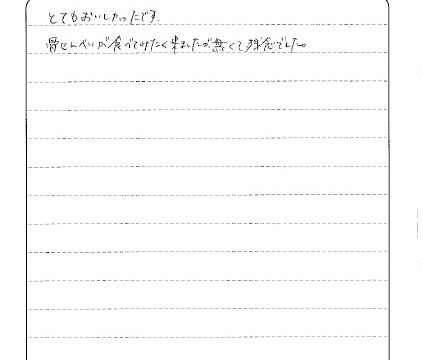 とてもおいしかったです。
骨せんべいが食べてみたく来ましたが無くて残念でした。